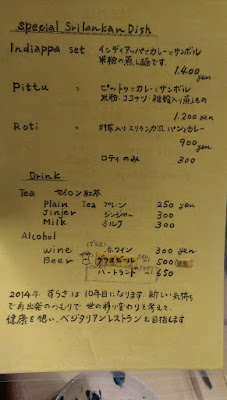 Special Srilankan Dish
Indiappa set インディアッパとカレーとサンボル
米粉の蒸し麺です。
1.400 yen
Pittu 〃 ピットゥとカレーとサンボル
米粉、ココナツ、雑穀入り蒸しもの
1.200 yen
Roti 〃 野菜入りスリランカ風パンとカレー
900 yen
ロティのみ 300
Drink
Tea セイロン紅茶
Plain Tea プレーン 250 yen
Jinjer ジンジャー 300
Milk ミルク 300
Alcohol
wine 赤ワイン 300 yen
Beer グラスビール 500
ハートランド 650
2014年 は 10年目になります 新しい気持ち
で再出発のつもりで、世の移り変わりを考えて、
健康を想い、ベジタリアンレストランを目指します